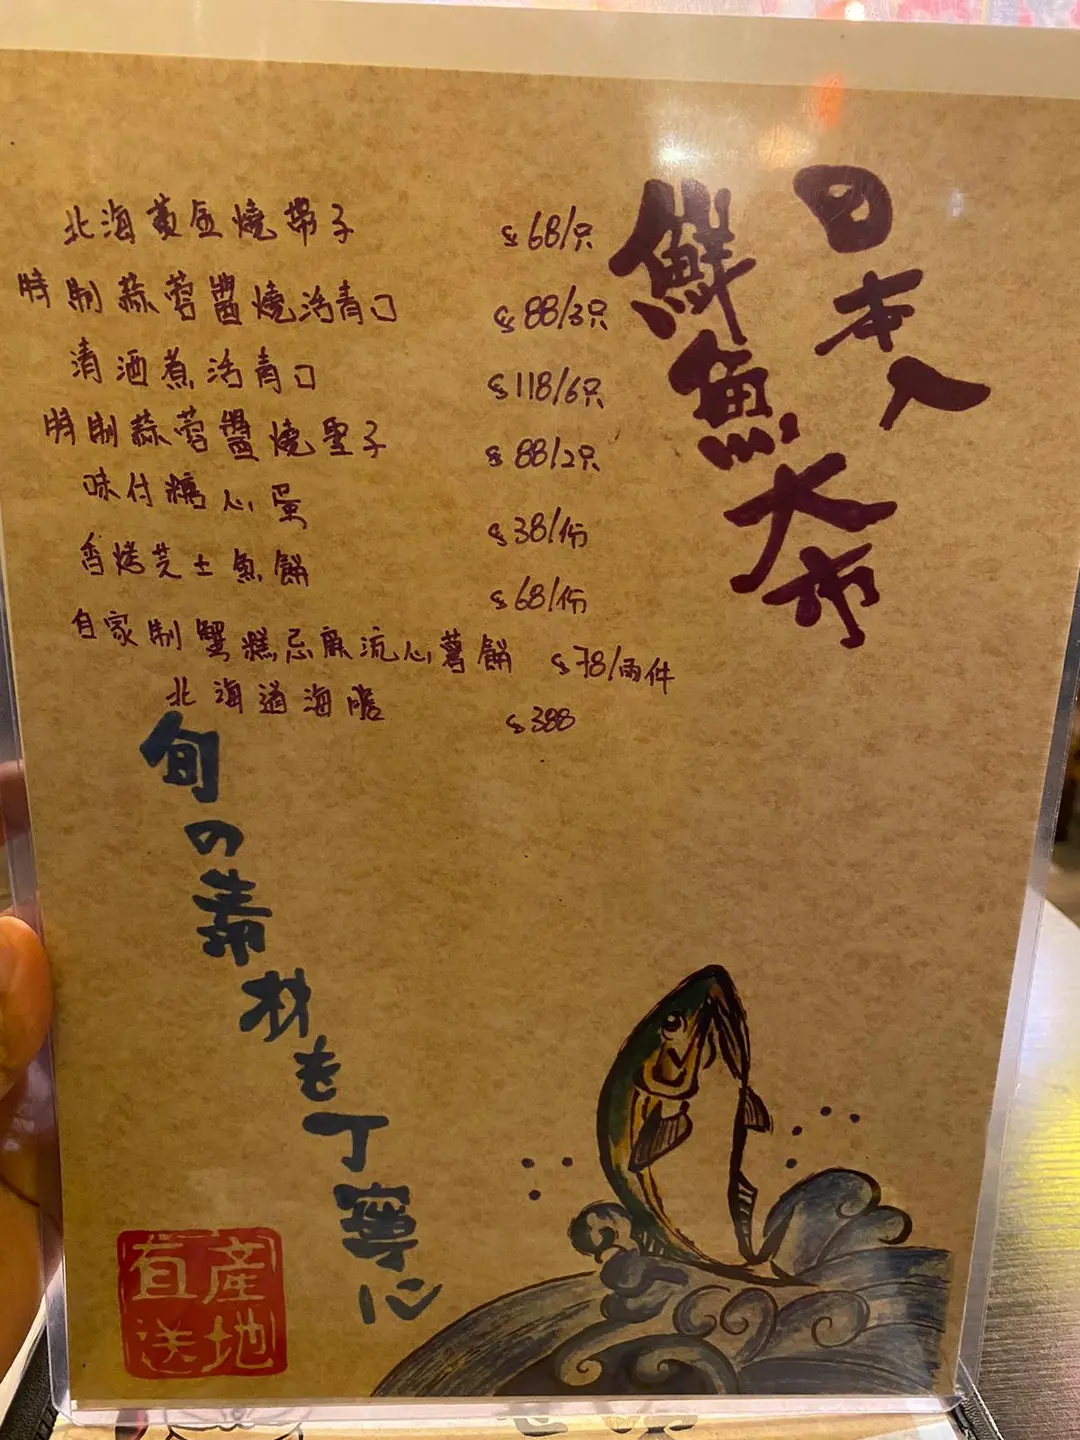 日本人
鮮魚大市
北海黄金燒帶子 $68/只
特制蒜蓉醬燒活青口 $88/3只
清酒煮活青口 $118/6只
特制蒜蓉醬燒聖子 $88/2只
味付糖心蛋 $38/份
香烤芝士魚餅 $68/份
自家制蟹糕忌廉流心薯餅 $78/兩件
北海道海膽 $388
旬の素材を丁寧に
産地
直送